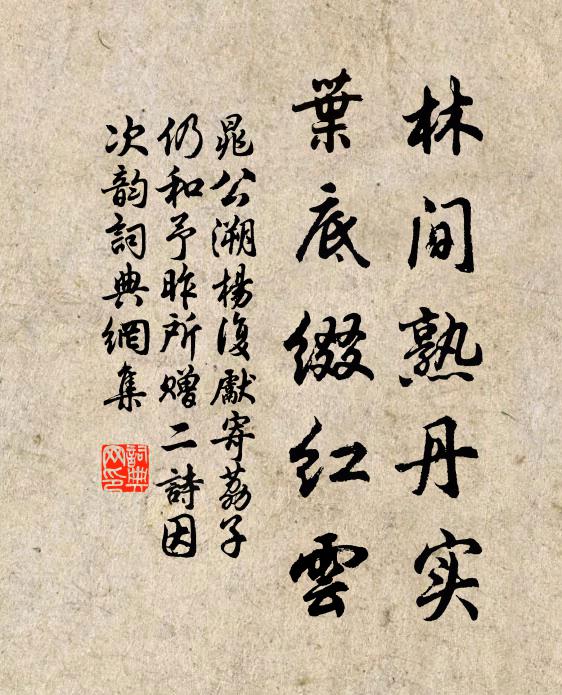 林间熟丹实
葉底缀红雲
晁公溯楊復獻寄荔子
仍和予昨所赠二詩因
次韵詞典網集
詞典网印